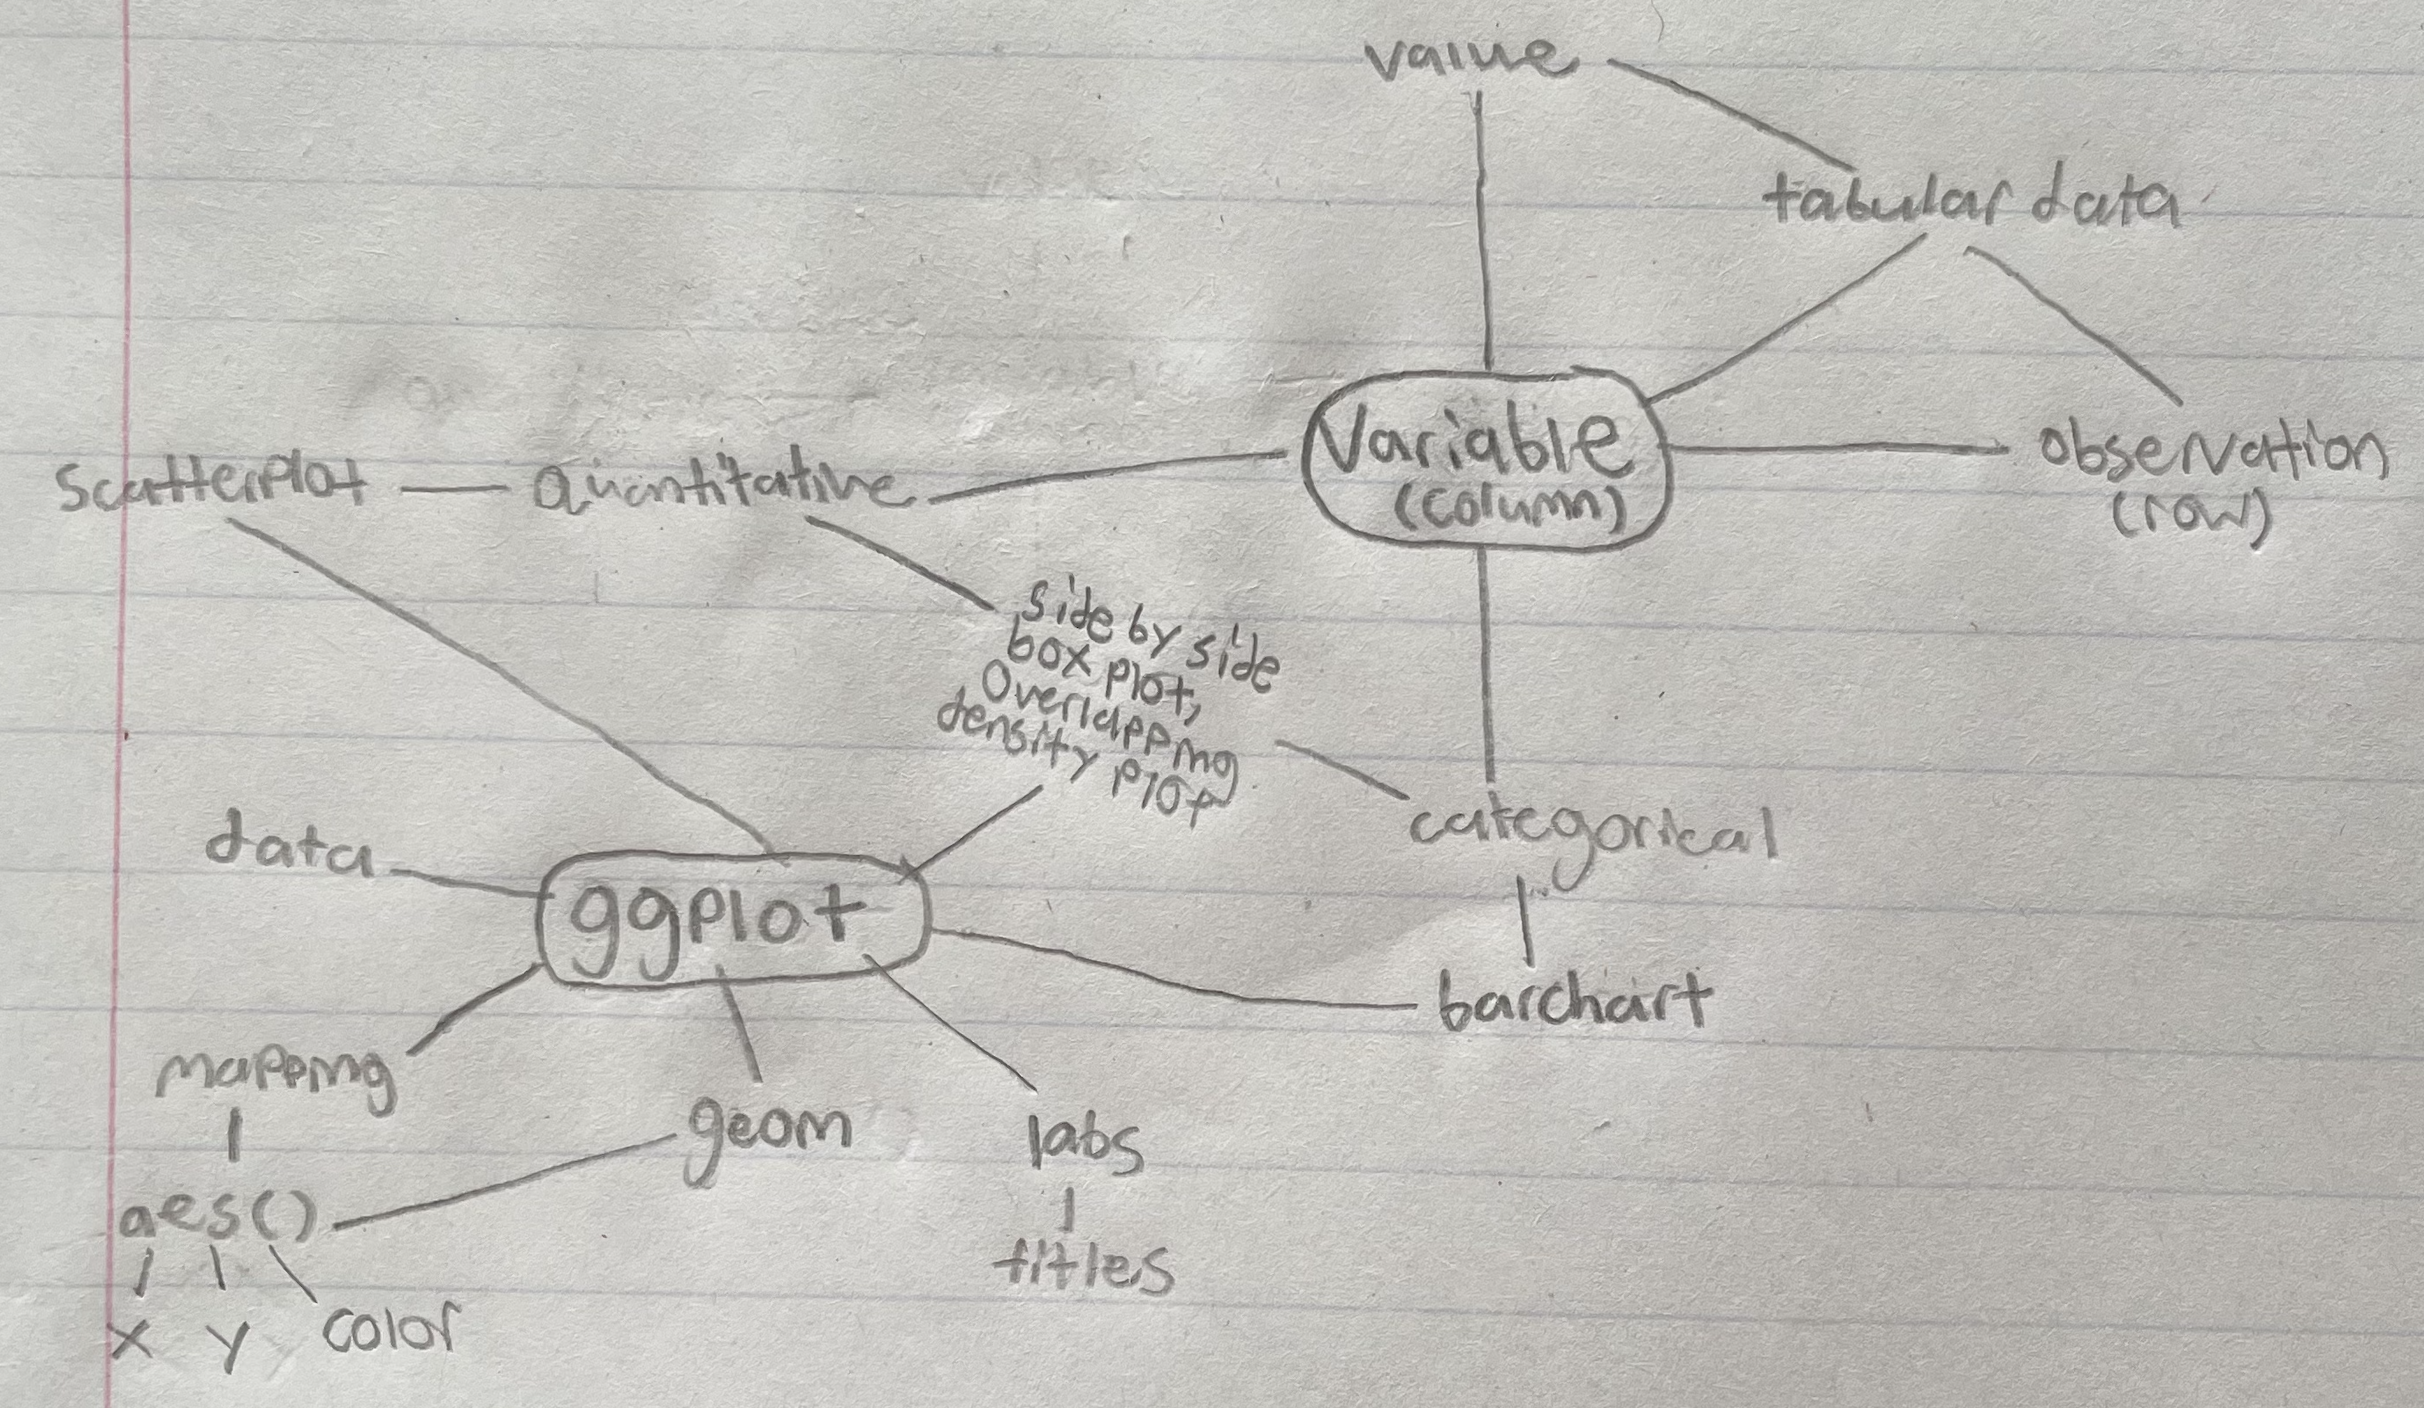 value
tabular data
Variable
(column)
observation
(row)
scatterplot
Quantitative
side by side
box plot,
Overlapping
density plot
categorical
barchart
data
ggplot
mapping
geom
labs
aes()
titles
x y color